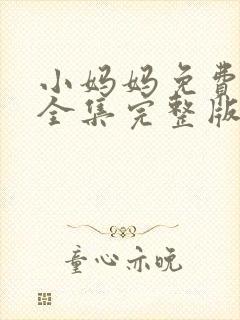 小妈妈免费
全集完整版
童心亦晚